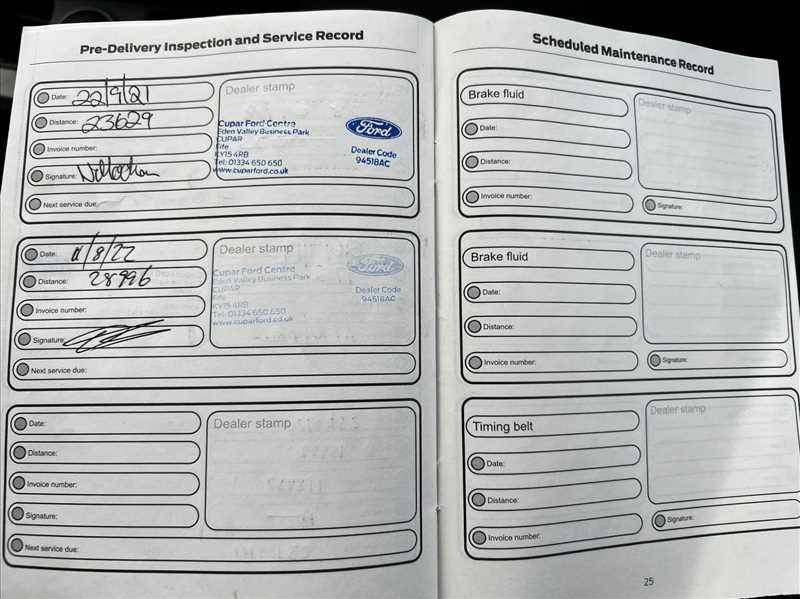 Pre-Delivery Inspection and Service Record
Date: 22/9/21
Distance: 23629
Invoice number:
Signature:
Next service due:
Dealer stamp
Cupar Ford Centre
Eden Valley Business Park
CUPAR
Fife
KY15 4RB
Tel: 01334 650 650
www.cuparford.co.uk
Ford
Dealer Code
94518AC
Date: 11/8/22
Distance: 28996
Invoice number:
Signature:
Next service due:
Dealer stamp
Cupar Ford Centre
Eden Valley Business Park
CUPAR
Fife
KY15 4RB
Tel: 01334 650 650
www.cuparford.co.uk
Ford
Dealer Code
94518AC
Date:
Distance:
Invoice number:
Signature:
Next service due:
Dealer stamp
Scheduled Maintenance Record
Brake fluid
Date:
Distance:
Invoice number:
Dealer stamp
Signature:
Brake fluid
Date:
Distance:
Invoice number:
Dealer stamp
Signature:
Timing belt
Date:
Distance:
Invoice number:
Dealer stamp
Signature:
25